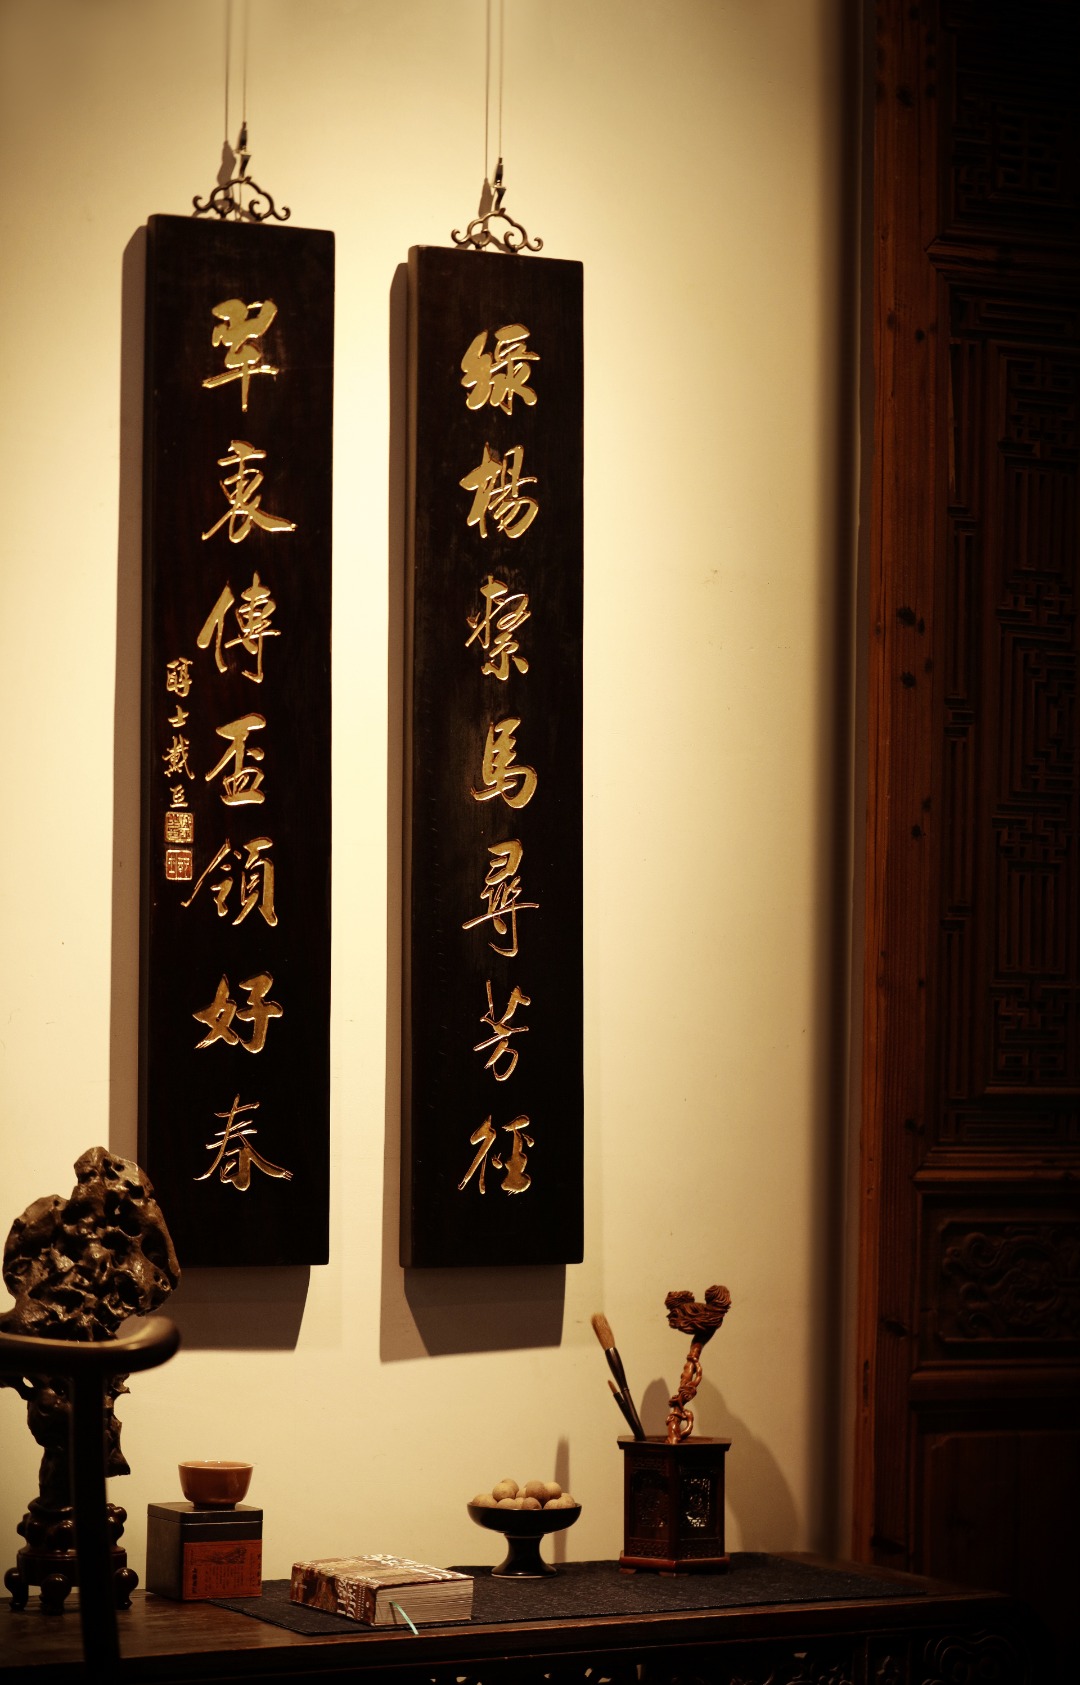 綠楊繫馬尋芳徑
翠衷傳盃領好春
醇士戴熙